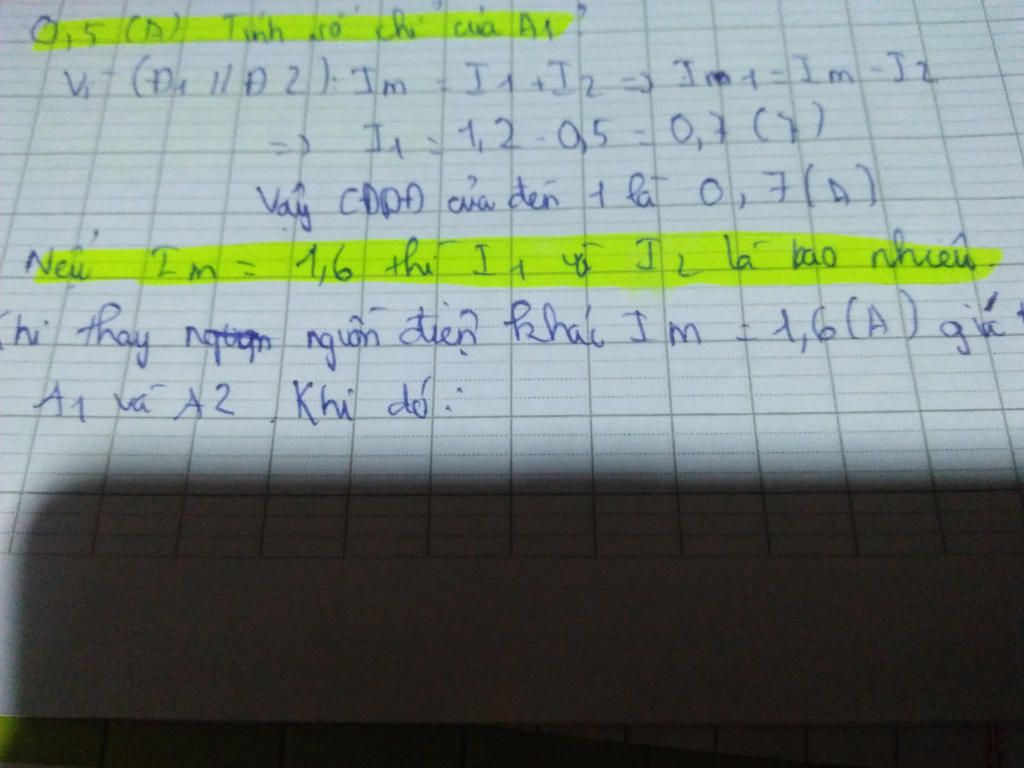 0,5 (A) Tính số chỉ của A1?
Vì (Đ1 // Đ2): Im = I1 + I2 => Im1 = Im - I2
=> I1 = 1,2 - 0,5 = 0,7 (A)
Vậy CĐDĐ của đèn 1 là 0,7 (A)
Nếu Im = 1,6 thì I1 và I2 là bao nhiêu
Khi thay nguồn điện khác Im = 1,6 (A) giá
A1 và A2. Khi đó: